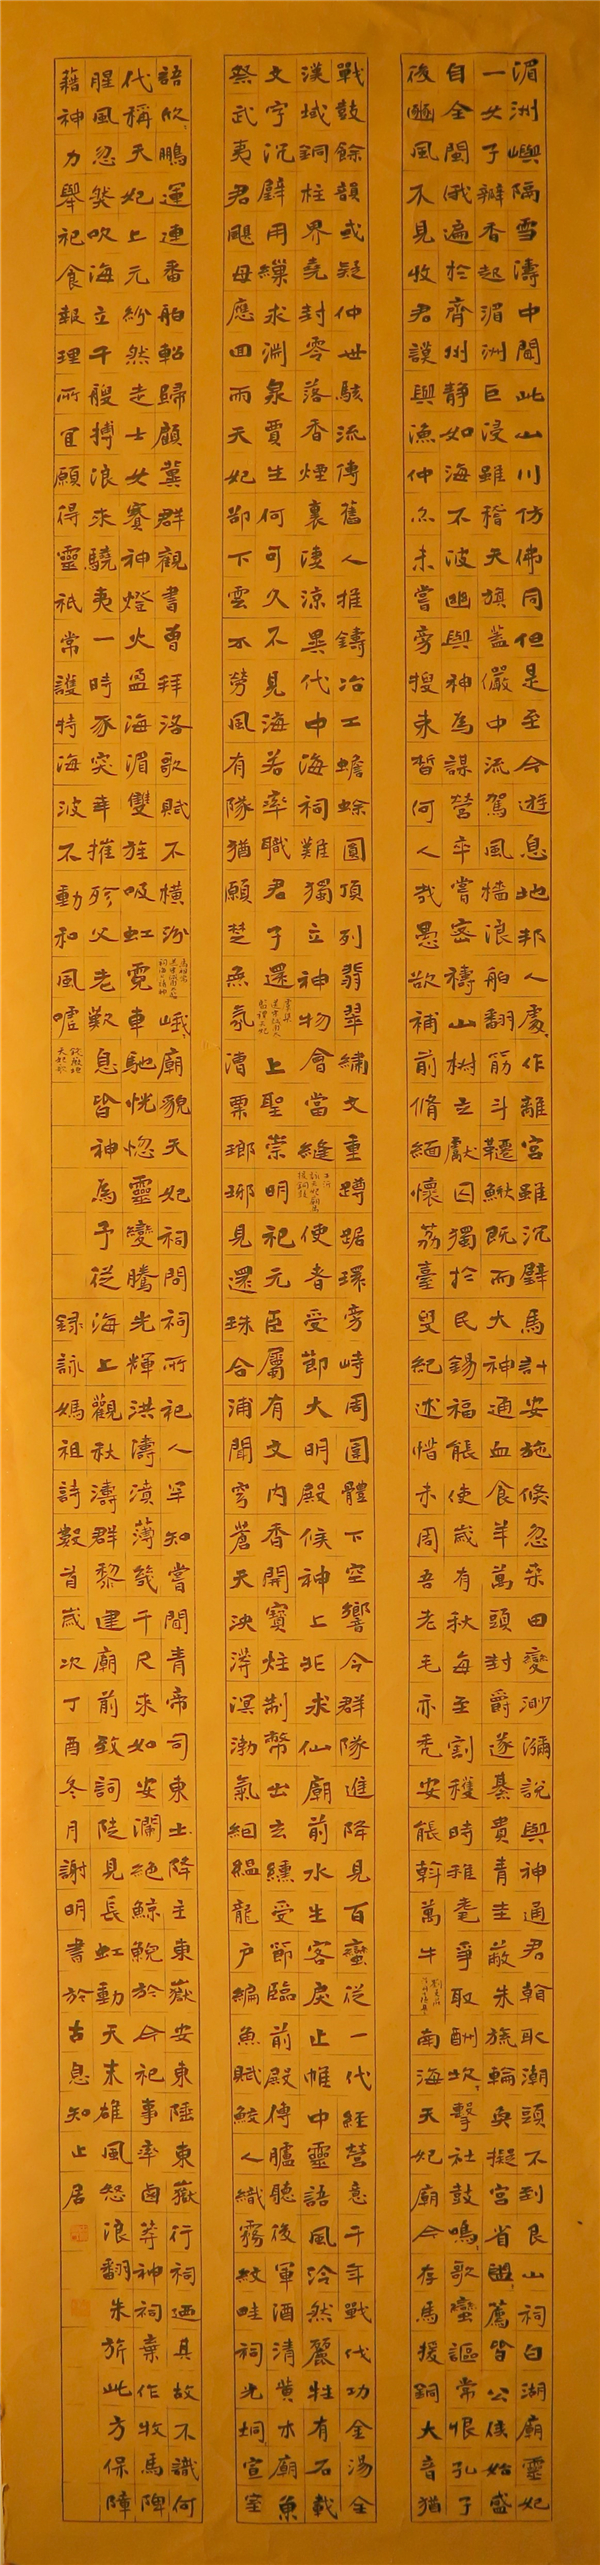 湄洲嶼隔雪濤中聞此山川仿佛同但是至今遊息地邦人處〻作離宮雖沉璧馬計安施倏忽桑田變渺瀰說與神通君翰取潮頭不到艮山祠白湖廟靈妃
一女子瓣香起湄洲巨浸雖稽天旗蓋儼中流駕風檣浪舶翻筋斗韆鞦既而大神通血食羊萬頭封爵遂綦貴青圭蔽朱旒輪奐擬宮省盥薦皆公侯始盛
自全閩俄遍於齊州靜如海不波幽與神為謀營卒嘗密禱山樹立獻囚獨於民錫福能使歲有秋每至割穫時稚耄爭取酬坎〻擊社鼓鳴歌蠻謳常恨孔子
後豳風不見收君謨與漁仲亦未嘗旁搜未晳何人哉愚欲補前脩緬懷荔臺叟紀述惜未周吾老毛亦禿安能斡萬牛南海天妃廟今存馬援銅大音猶
戰鼓餘韻或疑仲世駭流傳舊人推鑄冶工蟾蜍圓頂列翡翠繡文重蹲踞環旁峙周圍體下空響今群隊進降見百蠻從一代經營意千年戰伐功金湯全
漢域銅柱界堯封零落香煙裏淒涼異代中海祠難獨立神物會當縫使者受節大明殿候神上北求仙廟前水生客戾止帷中靈語風泠然麗牲有石載
文字沉璧用繅求淵泉賈生何可久不見海若率職君子還上聖崇明祀元臣屬有文內香開寶炷制幣出玄纁受節臨前殿傳臚聽後軍酒清黃木廟東
祭武夷君颶母應回雨天妃卻下雲不勞風有隊猶願楚無氛漕粟瑯琊見還珠合浦聞穹蒼天泱漭溟渤氣絪縕龍戶編魚賦鮫人織霧紋畦祠光烱宣室
語欣〻鵬運連番舶軺歸願冀群觀書曾拜洛歌賦不橫汾峨〻廟貌天妃祠問祠所祀人罕知嘗聞青帝司東土降主東嶽安東陲東嶽行祠迺其故不識何
代稱天妃上元紛然走士女賽神燈火盈海湄雙旌吸虹霓車馳恍惚靈變騰光輝洪濤濆薄幾千尺來如安瀾絕鯨鯢於今祀事率鹵莽神祠棄作牧馬陴
腥風忽然吹海立千艘搏浪來驍夷一時豕突幸摧殄父老歎息皆神為予從海上觀秋濤群黎建廟前致詞陡見長虹動天末雄風怒浪翻朱旂此方保障
藉神力舉祀食報理所宜願得靈祇常護持海波不動和風噓
錄詠媽祖詩數首歲次丁酉冬月謝明書於古息知止居